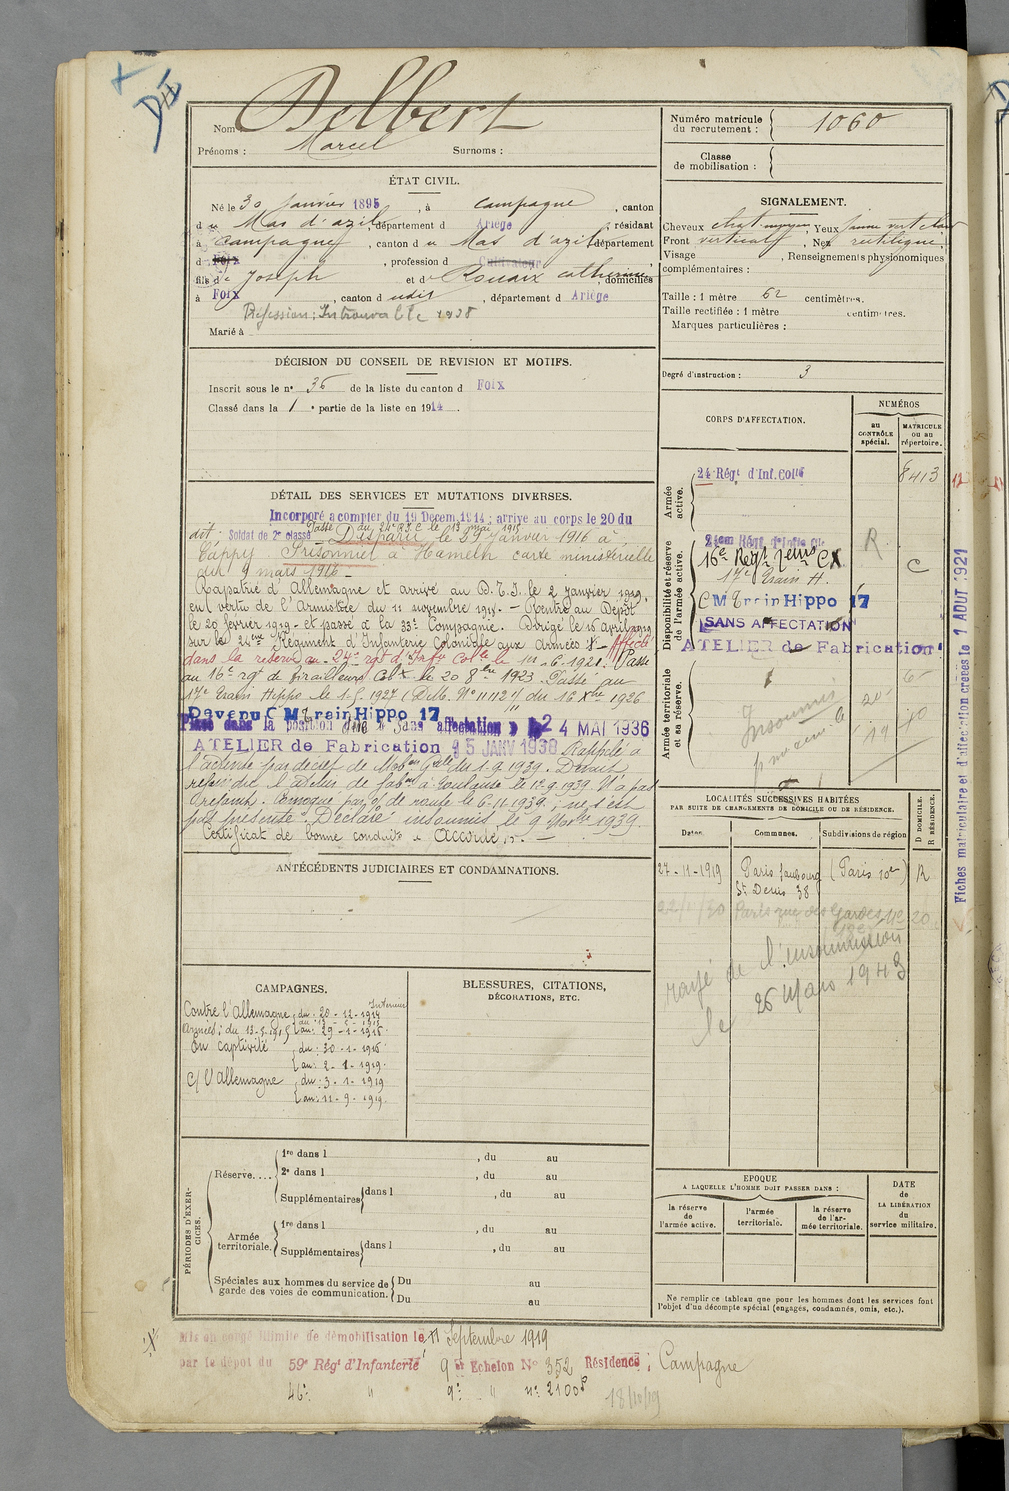 DII
Nom : Delbert
Prénoms : Marcel Surnoms :
Numéro matricule du recrutement : 1060
Classe de mobilisation :
ÉTAT CIVIL.
Né le 30 Janvier 1895, à Campagne, canton
du Mas d'azil, département d Ariège, résidant
à Campagne, canton du Mas d'azil, département
d Foix, profession d Cultivateur
fils de Joseph et de Rouaix Catherine, domiciliés
à Foix, canton dudit, département d Ariège
Profession : Introuvable 1938
Marié à
SIGNALEMENT.
Cheveux chat. moyen, Yeux jaune vert clair
Front vertical, Nez rectiligne,
Visage , Renseignements physionomiques
complémentaires :
Taille : 1 mètre 62 centimètres.
Taille rectifiée : 1 mètre centimètres.
Marques particulières :
Degré d'instruction : 3
DÉCISION DU CONSEIL DE REVISION ET MOTIFS.
Inscrit sous le n° 36 de la liste du canton d Foix
Classé dans la 1e partie de la liste en 1914.
DÉTAIL DES SERVICES ET MUTATIONS DIVERSES.
Incorporé à compter du 19 Décem. 1914 ; arrivé au corps le 20 du
dit, Soldat de 2e classe Passé au 24e R.I.C. le 13 mai 1915
Disparu le 29 Janvier 1916 à
Cappy. Prisonnier à Hameln carte ministérielle
du 9 mars 1916 -
Rapatrié d'Allemagne et arrivé au D.T.I. le 2 janvier 1919,
en vertu de l'Armistice du 11 novembre 1918. - Rentré au Dépôt
le 20 février 1919 - et passé à la 33e Compagnie. Dirigé le 16 avril 1919
sur le 24me Régiment d'Infanterie Coloniale aux Armées. Affecté
dans la réserve au 24e rgt d'Infie Colle le 11-6-1921. Passé
au 16e rgt de Tirailleurs Colx le 20 8bre 1923. Passé au
17e Train Hippo le 1.5.1927 (D. Me. N° 11112 du 16 Xbre 1926
Devenu C M Train Hippo 17
Placé dans la position dite « Sans affectation » le 24 MAI 1936
ATELIER de Fabrication 15 JANV 1938 Rappelé à
l'activité par décret de Mobon Gale du 1.9.1939. Devait
rejoindre l'Atelier de fabon à Toulouse le 12.9.1939. N'a pas
. Convoqué par o/ de route le 6-11-1939, ne s'est
pas présenté. Déclaré insoumis le 9 1939.
Certificat de bonne conduite « Accordé ».
CORPS D'AFFECTATION.
NUMÉROS
au CONTRÔLE spécial.
MATRICULE ou au répertoire.
Armée active.
24 Régt d'Inf. Colle 8413
Disponibilité et réserve de l'armée active.
16e Régt Tailleurs CX R C
17e Train H.
C M Train Hippo 17
SANS AFFECTATION
ATELIER de Fabrication
Armée territoriale et sa réserve.
Insoumis
Fiches matriculaire et d'affectation créées le 1 AOUT 1921
LOCALITÉS SUCCESSIVES HABITÉES
PAR SUITE DE CHANGEMENTS DE DOMICILE OU DE RÉSIDENCE.
Dates. Communes. Subdivisions de région D DOMICILE. R RÉSIDENCE.
27-11-1919 Paris faubourg St Denis 38 (Paris 10e) R
Paris rue des Gardes N° 20
rayé de l'insoumission
le 26 Mars 1943
ANTÉCÉDENTS JUDICIAIRES ET CONDAMNATIONS.
CAMPAGNES.
Contre l'Allemagne du : 20-12-1914 Intérieur
au : 13-5-1915
Armées : du 13-5-1915 au : 29-1-1916
En captivité du : 30-1-1916
au : 2-1-1919.
C/ l'Allemagne du : 3-1-1919
au : 11-9-1919
BLESSURES, CITATIONS,
DÉCORATIONS, ETC.
PÉRIODES D'EXERCICES.
Réserve.... 1re dans l , du au
2e dans l , du au
Supplémentaires dans l , du au
Armée territoriale. 1re dans l , du au
Supplémentaires dans l , du au
Spéciales aux hommes du service de garde des voies de communication. Du au
Du au
EPOQUE
A LAQUELLE L'HOMME DOIT PASSER DANS :
la réserve de l'armée active.
l'armée territoriale.
la réserve de l'armée territoriale.
DATE de LA LIBÉRATION du service militaire.
Ne remplir ce tableau que pour les hommes dont les services font
l'objet d'un décompte spécial (engagés, condamnés, omis, etc.).
Mis en congé illimité de démobilisation le 11 Septembre 1919
par le dépôt du 59e Régt d'Infanterie, 9e Echelon N° 352 Résidence : Campagne
46e " 9e " n° 2100
18/10/19